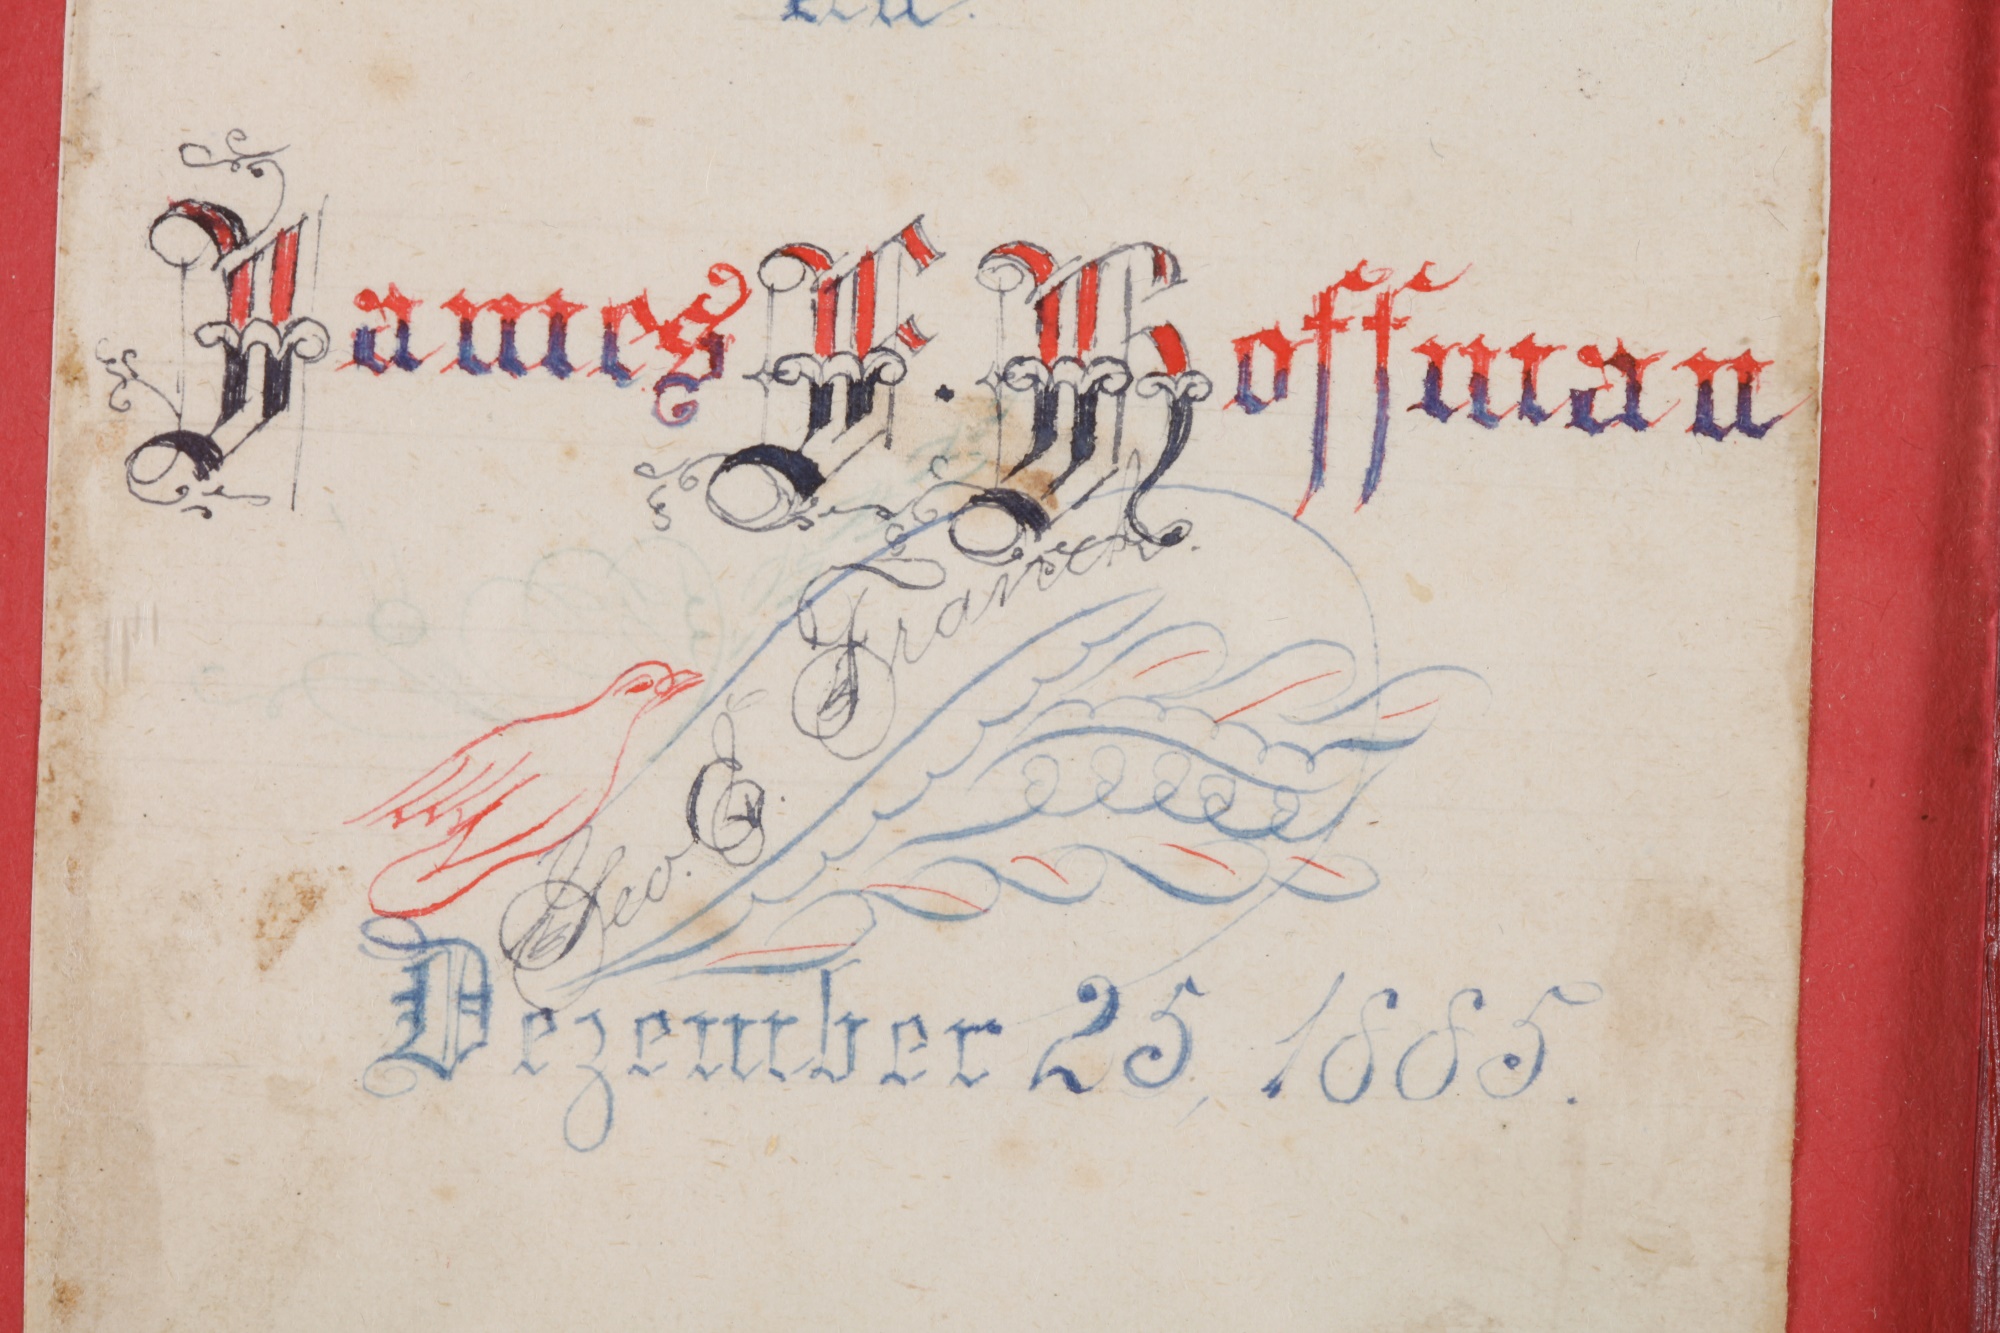 James F. Hoffman
Geo. E. Frantz.
Dezember 25, 1885.